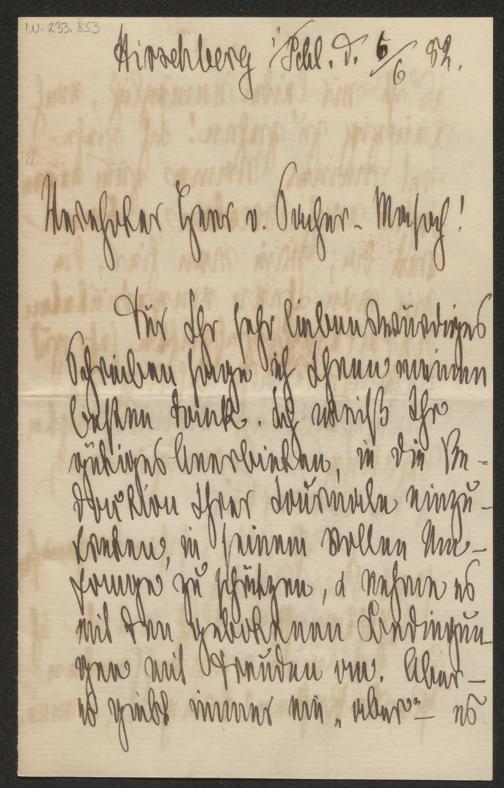 I.N. 233.853
Hirschberg i/Schl. d. 6/6 82.
Verehrter Herr v. Sacher-Masoch!
Für Ihr sehr liebenswürdiges
Schreiben sage ich Ihnen meinen
besten Dank. Ich weiß Ihr
gütiges Anerbieten, in die Re-
daktion Ihres Journals einzu-
treten, in seinem vollen Um-
fange zu schätzen, u nehme es
mit den gebotenen Bedingun-
gen mit Freuden an. Aber –
es giebt immer ein „aber“ – es